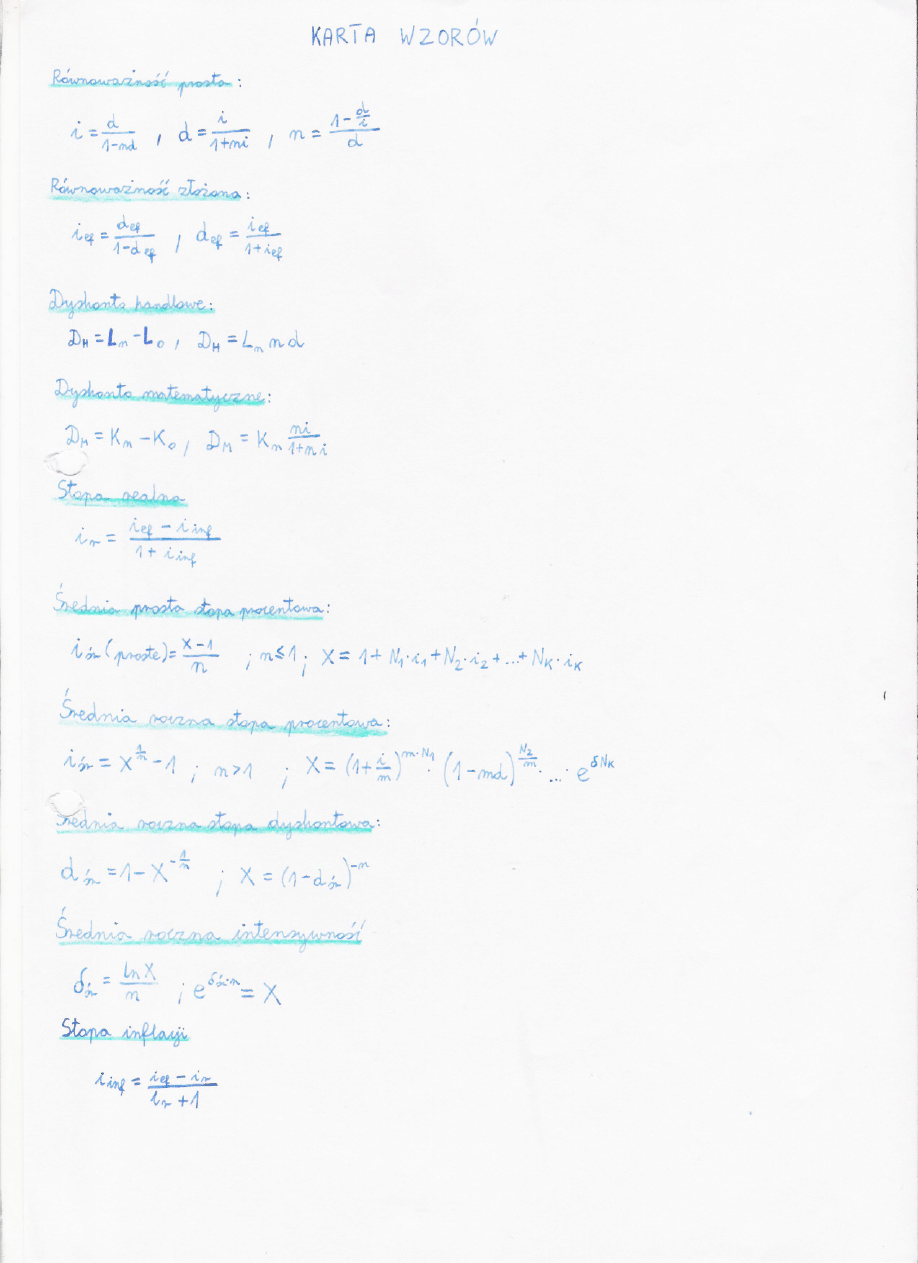 KARTA WZORÓW
Równoważność prosta:
i = d/(1-nd) , d = i/(1+ni) , n = (1-d/i)/d
Równoważność złożona:
i_ef = d_ef/(1-d_ef) , d_ef = i_ef/(1+i_ef)
Dyskonto handlowe:
D_H = L_n - L_0 , D_H = L_n n d
Dyskonto matematyczne:
D_M = K_n - K_0 , D_M = K_n ni/(1+ni)
Stopa realna
i_r = (i_ef - i_inf)/(1 + i_inf)
Średnia prosta stopa procentowa:
i_śr (proste) = (X-1)/n ; n≤1 ; X = 1 + N_1·i_1 + N_2·i_2 + ... + N_K·i_K
Średnia roczna stopa procentowa:
i_śr = X^(1/n) - 1 ; n>1 ; X = (1+i/m)^(m·N_1) · (1-md)^(N_2/m) · ... · e^(δN_K)
Średnia roczna stopa dyskontowa:
d_śr = 1 - X^(-1/n) ; X = (1-d_śr)^(-n)
Średnia roczna intensywność
δ_śr = ln X/n ; e^(δ_śr·n) = X
Stopa inflacji
i_inf = (i_ef - i_r)/(i_r + 1)